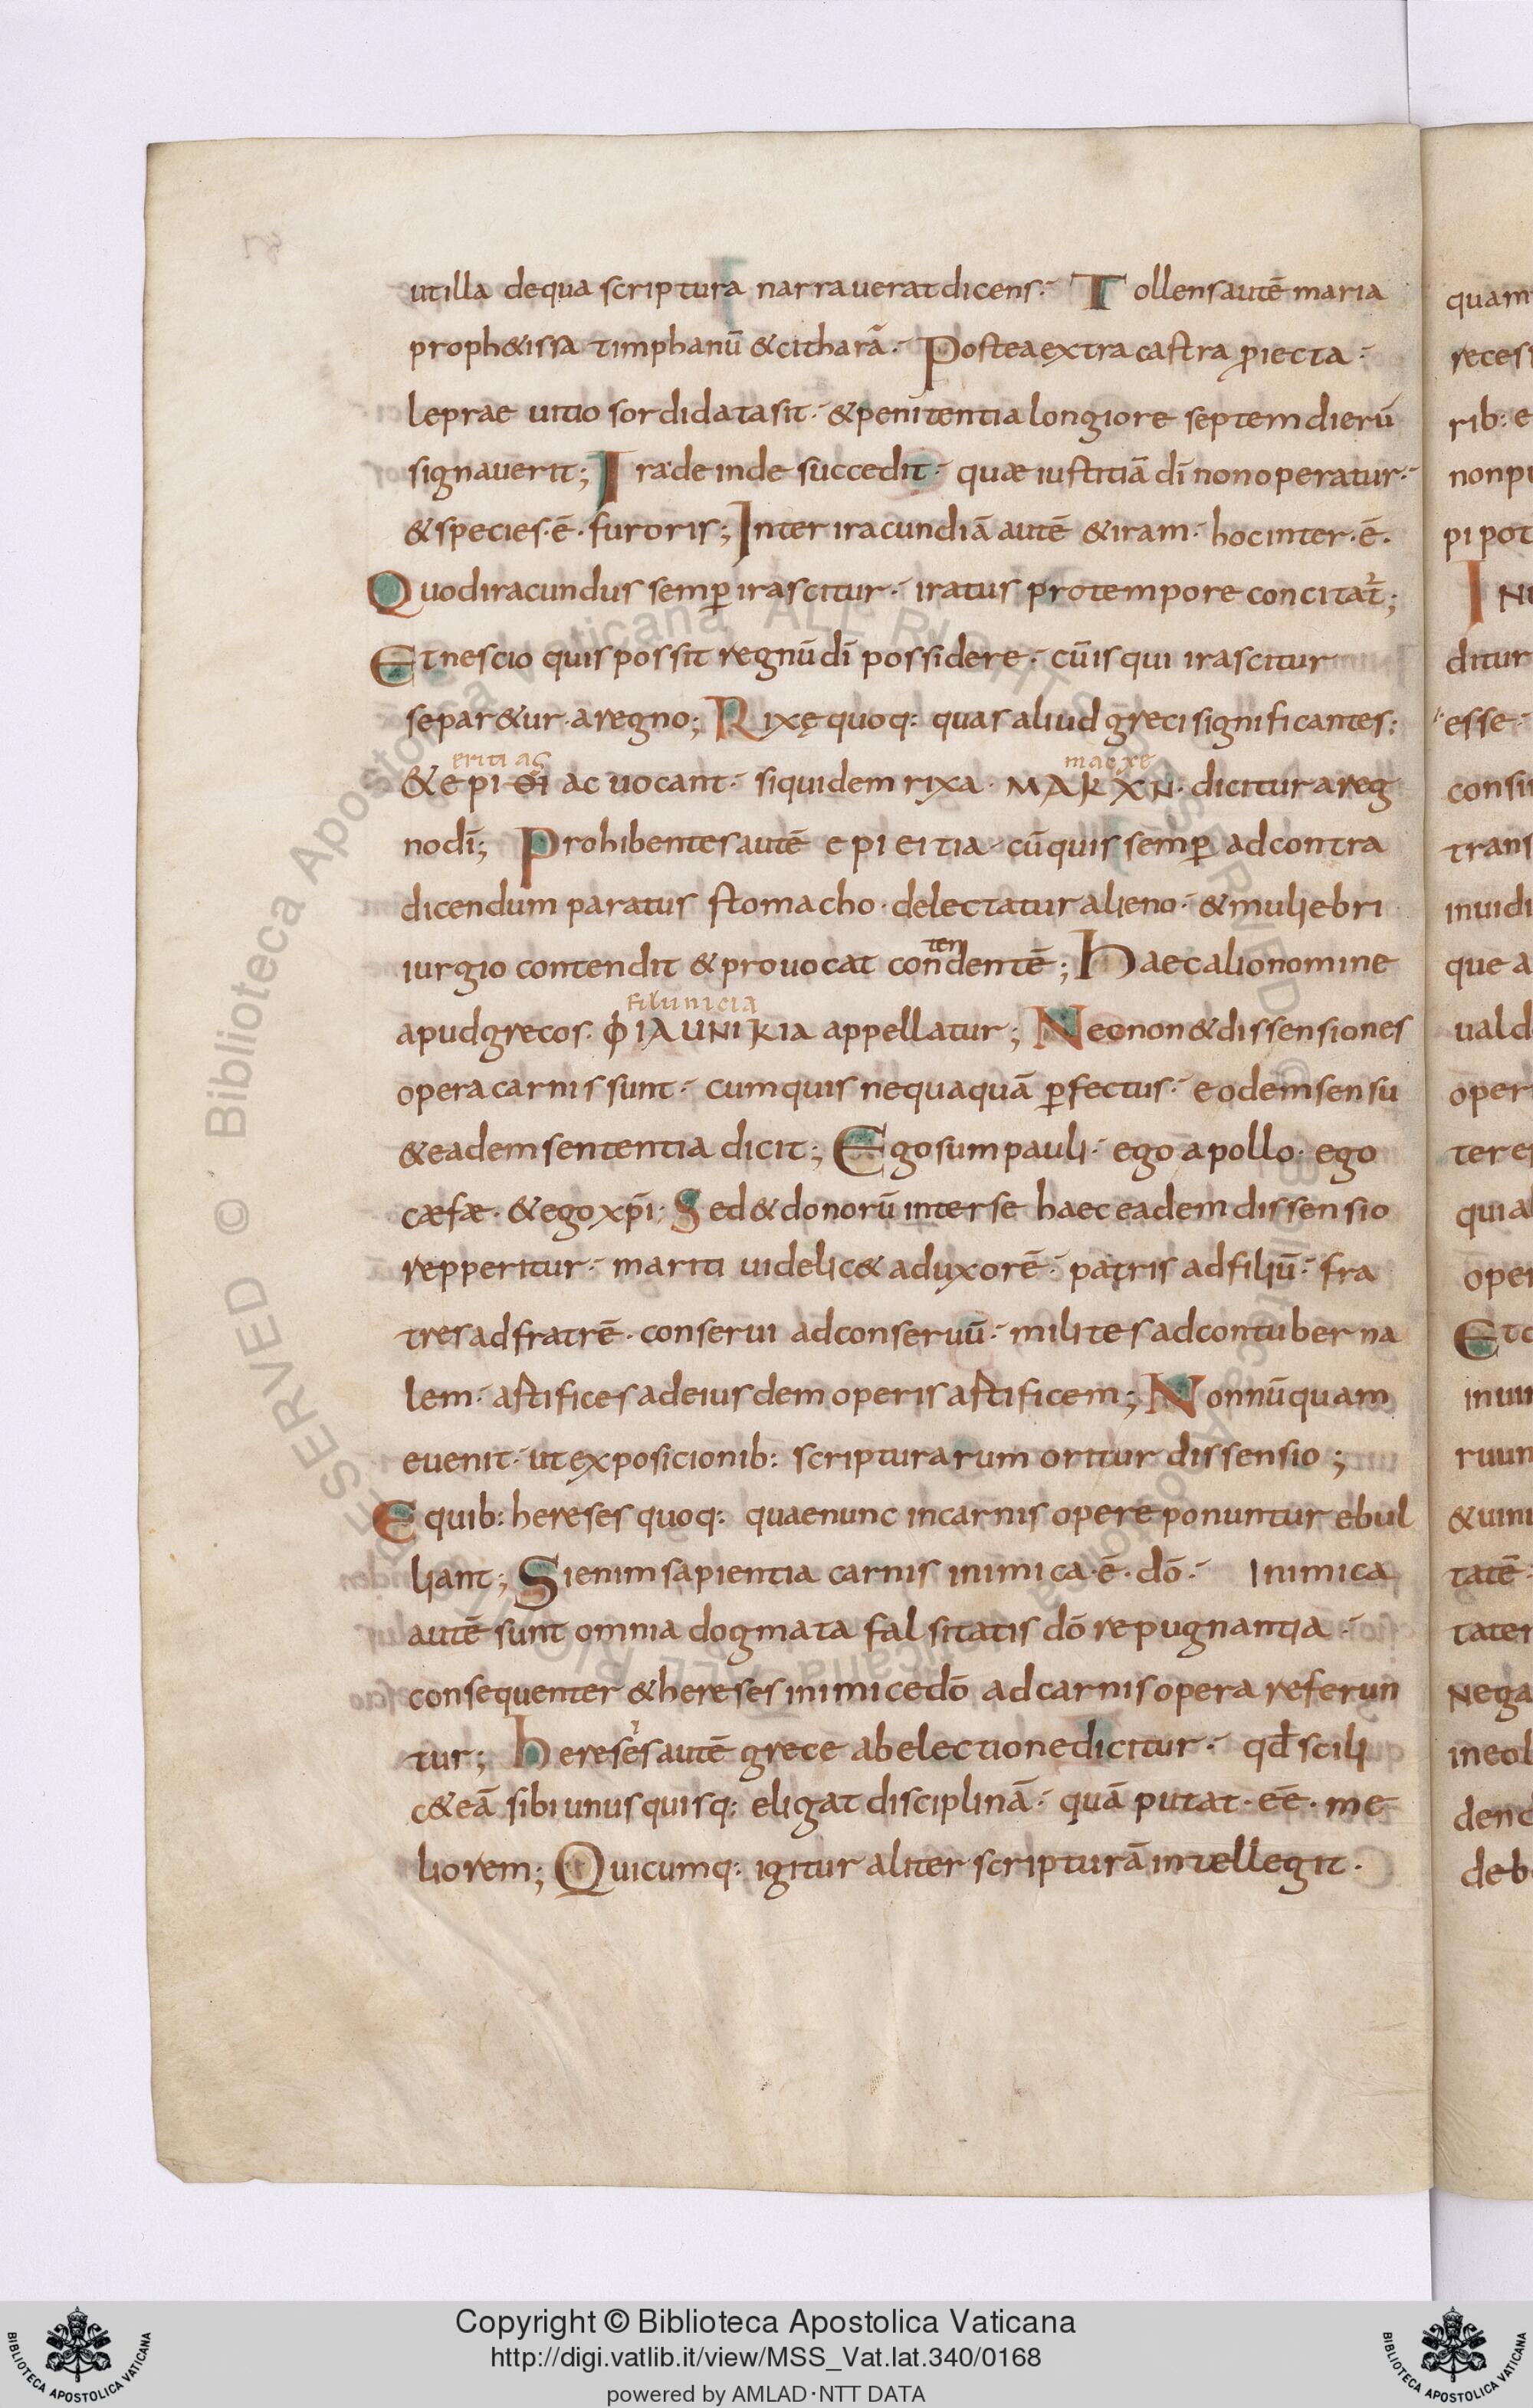 utilla dequa scriptura narrauerat dicens. Tollens autē maria
proph&issa timphanū & citharā. Postea extra castra ꝓiecta.
leprae uitio sordidata sit. & penitentia longiore septem dierū
signauerit; Ira deinde succedit. quæ iustitiā dī non operatur.
& species. ē. furoris; Inter iracundiā autē & iram. hoc inter. ē.
Quod iracundus semꝑ irascitur. iratus pro tempore concitat̃;
Et nescio quis possit regnū dī possidere. cū is qui irascitur
separ&ur. a regno; Rixę quoq: quas aliud greci significantes:
eriti aς macxe
& epi ei ac uocant. siquidem rixa. MAKXN. dicitur a reg
no dī; Prohibentes autē epieitia. cū quis semꝑ ad contra
dicendum paratus stomacho. delectatur alieno. & muliebri
ten
iurgio contendit & prouocat condentē; Haec alio nomine
filunicia
apud grecos. ΦIAUNIKIA appellatur; Neo non & dissensiones
opera carnis sunt. cum quis nequaquā ꝑfectus. eodem sensu
& eadem sententia dicit; Ego sum pauli. ego apollo. ego
cæfæ. & ego xp̄i. Sed & donorū inter se haec eadem dissensio
repperitur. mariti uidelic& ad uxorē. patris ad filiū. fra
tres ad fratrē. conserui ad conseruū. milites ad contuberna
lem. astifices ad eiusdem operis astificem; Nonnūquam
euenit. ut exposicionib: scripturarum oritur dissensio;
E quib: hereses quoq: quae nunc in carnis opere ponuntur ebul
liant; Si enim sapientia carnis inimica. ē. dō. Inimica
autē sunt omnia dogmata falsitatis dō repugnantia.
consequenter & hereses inimice dō ad carnis opera referun
tur; Hereses autē grece ab electione dicitur. qd̄ scili
c& eā sibi unusquisq: eligat disciplinā. quā putat. eē. me
liorem; Quicumq: igitur aliter scripturā intellegit.
quam
reces
rib: e
non p
pi pot
IN
ditur
esse
consi
trans
inuidi
que a
uald
oper
tere
quia
oper
Et
inui
ruun
& uini
tatē
tater
Nega
in eol
denc
deb
Copyright © Biblioteca Apostolica Vaticana
http://digi.vatlib.it/view/MSS_Vat.lat.340/0168
powered by AMLAD·NTT DATA